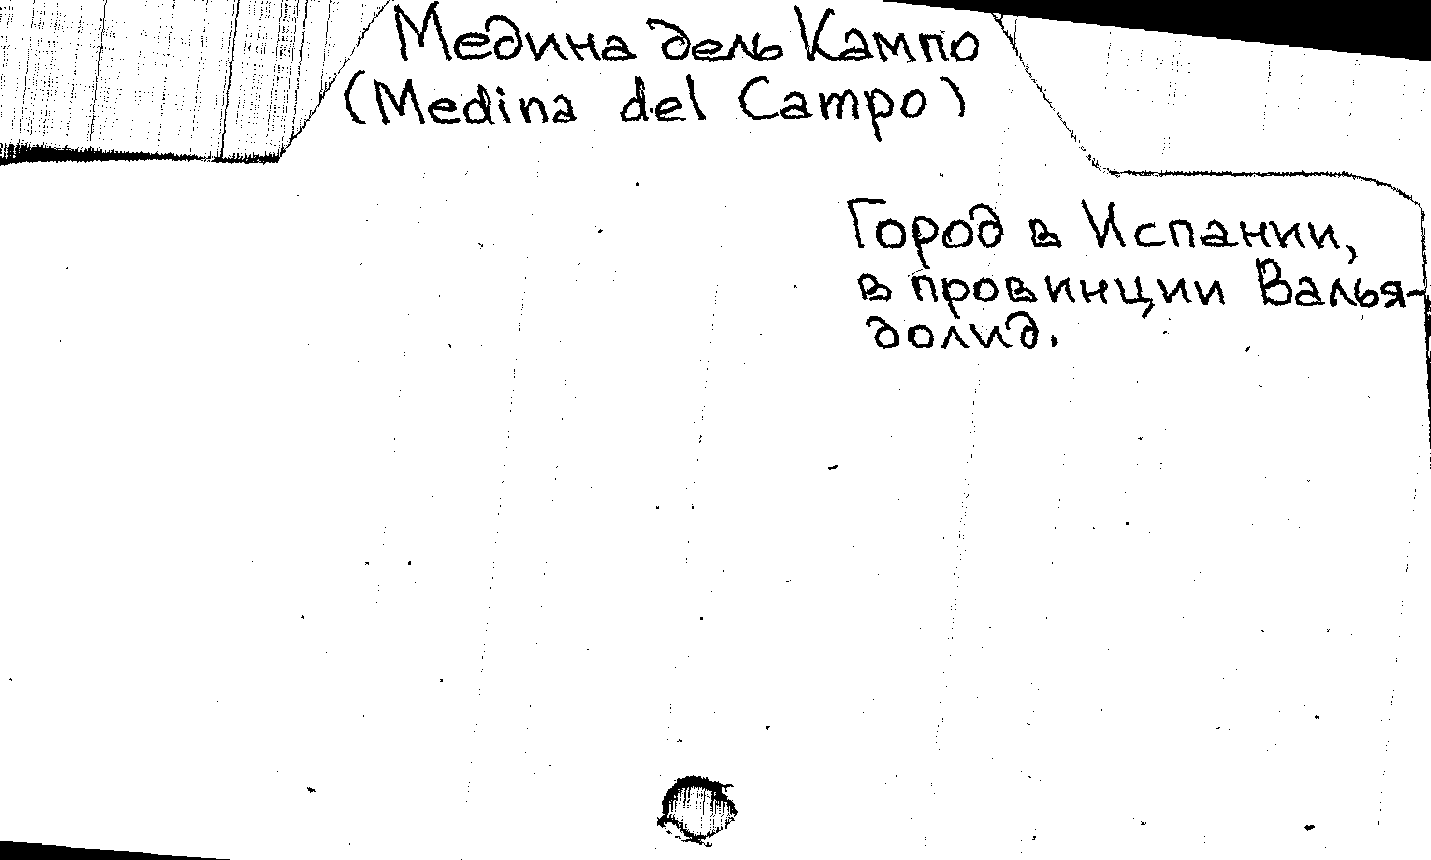 Медина дель Кампо
(Medina del Campo)
Город в Испании,
в провинции Валья-
долид.